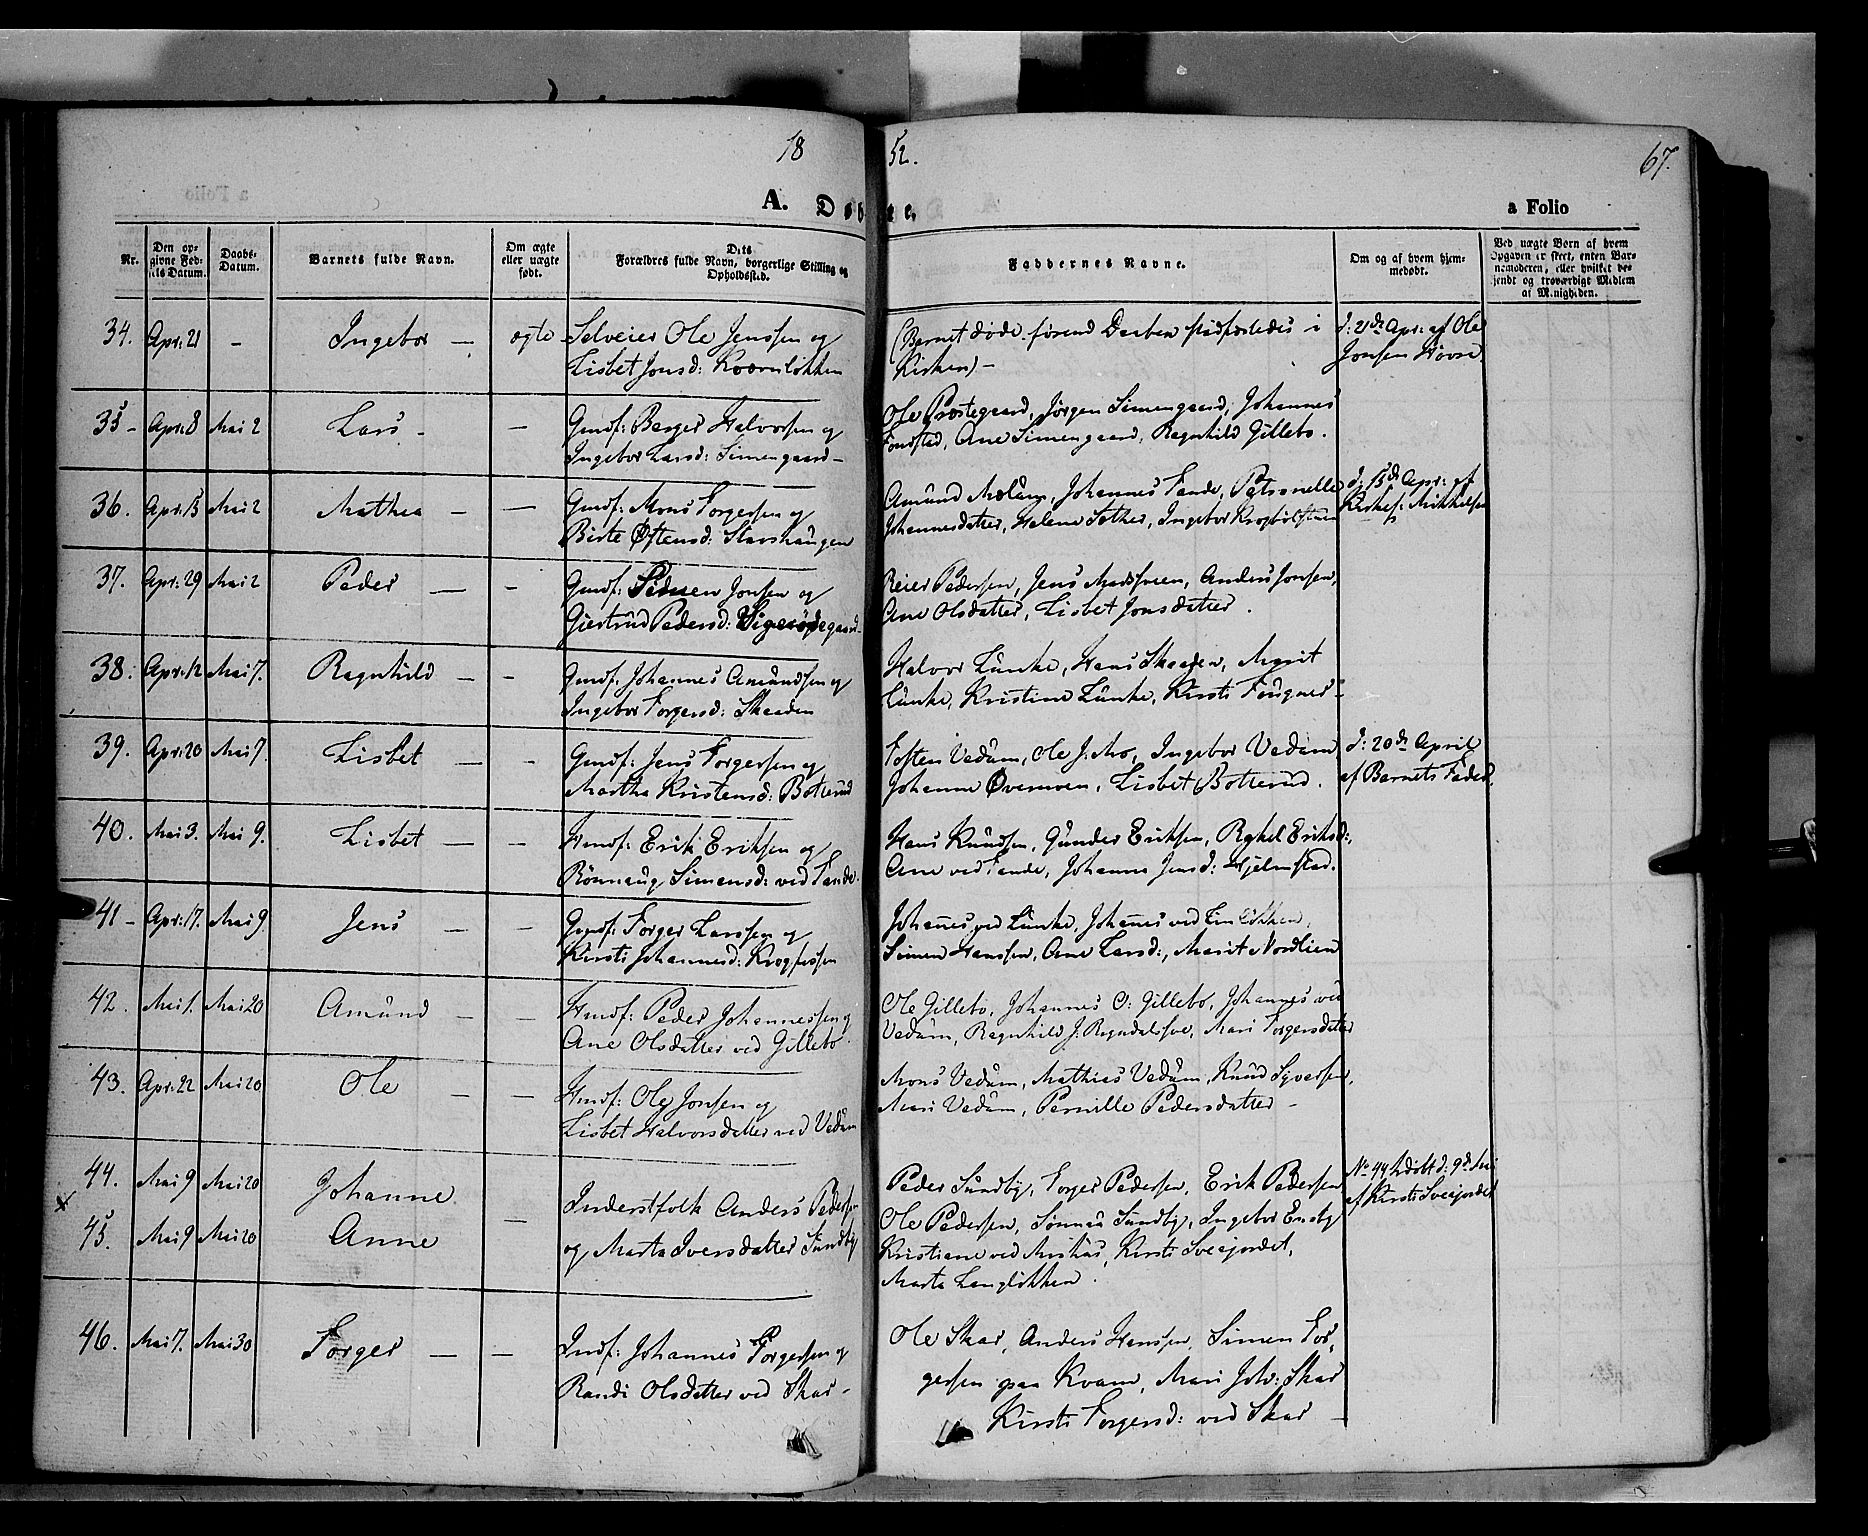 18
52.
67.
A. Døbte.
a Folio
Nr.
Den opgivne Fødsels Datum.
Daabs-Datum.
Barnets fulde Navn.
Om ægte eller uægte født.
Dets Forældres fulde Navn, borgerlige Stilling og Opholdssted.
Faddernes Navne.
Om og af hvem hjemmedøbt.
Ved uægte Børn af hvem Opgaven er skeet, enten Barnemoderen, eller hvilket bekjendt og troværdigt Medlem af Menigheden.
34. Apr: 21 - Ingebor - ægte Selveier Ole Jenssen og (Barnet døde førend Daaben stadfæstedes i d: 21de Apr: af Ole
Lisbet Jonsd: Kværnløkken Kirken) - Jonsen
35 - Apr: 8 Mai 2 Lars - - Gmdf: Berger Halvorsen og Ole Præstegaard, Jørgen Simengaard, Johannes
Ingebor Larsd: Simengaard - Fonstad, Ane Simengaard, Ragnhild Gillebo.
36. Apr: 15 Mai 2 Mathea - - Gmdf: Mons Torgersen og Amund Johannes Tande, Petronelle d: 15de Apr: af
Birte Østensd: Johannesdatter, Helene Sether, Ingebor Kirkes: Mikkelsen
37. Apr: 29 Mai 2 Peder - - Gmdf: Simen Jonsen og Reier Pedersen, Jens Anders Jonsen,
Giertrud Pedersd: Ane Olsdatter, Lisbet Jonsdatter.
38. Apr: 12 Mai 7. Ragnhild - - Gmdf: Johannes Amundsen og Halvor Lunke, Hans Skaaden, Marit
Ingebor Torgersd: Skaaden Lunke, Kristine Lunke, Kirsti Fougner -
39. Apr: 20 Mai 7. Lisbet - - Gmdf: Jens Torgersen og Tosten Vedum, Ole J. Mo, Ingebor Vedum d: 20de April
Martha Kristensd: Botterud Johanne Øvermoen, Lisbet Botterud. af Barnets Fader.
40. Mai 3. Mai 9. Lisbet - - Hmdf: Erik Eriksen og Hans Knudsen, Gunder Eriksen, Rakel Eriksd:,
Rønnaug Simensd: ved Tande. Ane ved Tande, Johanne Jensd: Hjelmstad.
41 - Apr: 17. Mai 9 Jens - - Gmdf: Torger Larssen og Johannes ved Lunke, Johannes ved
Kirsti Johannesd: Simen Hanssen, Ane Larsd:, Marit Nordlien
42. Mai 1. Mai 20 Amund - - Hmdf: Peder Johannessen og Ole Gillebo, Johannes O: Gillebo, Johannes ved
Ane Olsdatter ved Gillebo. Vedum, Ragnhild J. Mari Torgersdatter
43. Apr: 22 Mai 20 Ole - - Hmdf: Ole Jonsen og Mons Vedum, Mathias Vedum, Knud Syversen,
Lisbet Halvorsdatter ved Vedum Mari Vedum, Pernille Pedersdatter -
44. Mai 9 Mai 20 Johanne Inderstfolk Anders Pedersen Peder Sundby, Torger Pedersen, Erik Pedersen No 44 hdøbt d: 9de Mai
x Ole Pedersen, Sundby, Ingebor Ensby af Kirsti Sveejordet
45. Mai 9 Mai 20 Anne - og Marta Iversdatter Sundby Kristiane ved Kirsti Sveejordet,
Marta Langløkken.
46. Mai 7. Mai 30 Torger - - Indf: Johannes Torgersen og Ole Skar, Anders Hanssen, Simen Tor-
Randi Olsdatter ved Skar - gersen paa Kvam, Mari Joh: Skar
Kirsti Torgersd: ved Skar -